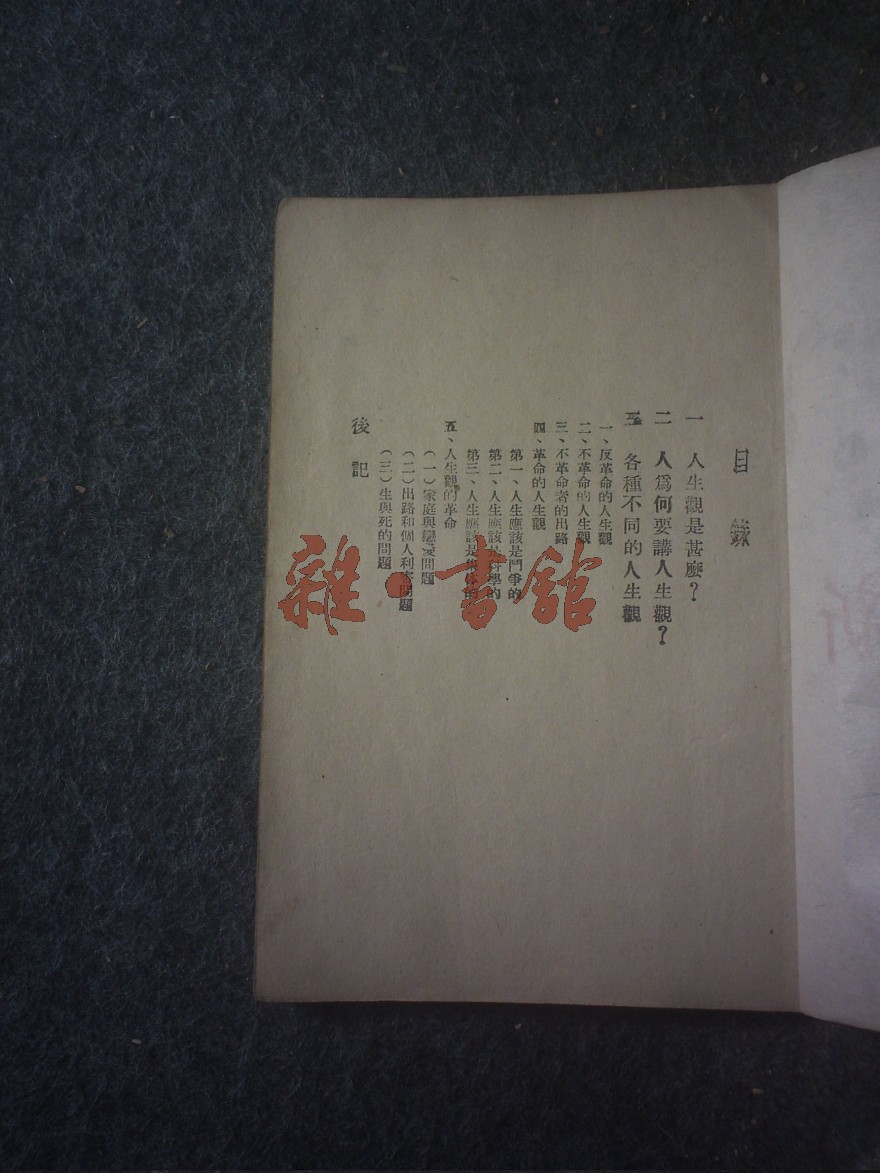 目錄
一 人生觀是甚麼？
二 人爲何要講人生觀？
三 各種不同的人生觀
一、反革命的人生觀
二、不革命的人生觀
三、不革命者的出路
四、革命的人生觀
第一、人生應該是鬥爭的
第二、人生應該是科學的
第三、人生應該是的
五、人生觀的革命
（一）家庭與戀愛問題
（二）出路和個人利害問題
（三）生與死的問題
後記
雜·書館